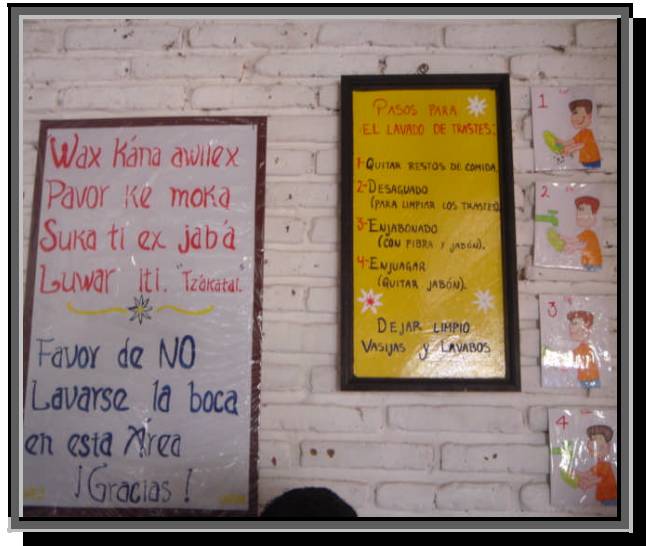 Wax Kána awilex
Pavor ke moka
Suka ti ex jabá
Luwar iti. "Tzákatal."
Favor de NO
Lavarse la boca
en esta Área
¡Gracias!
PASOS PARA
EL LAVADO DE TRASTES:
1-QUITAR RESTOS DE COMIDA.
2-DESAGUADO
(PARA LIMPIAR LOS TRASTES)
3-ENJABONADO
(CON FIBRA Y JABÓN).
4-ENJUAGAR
(QUITAR JABÓN).
DEJAR LIMPIO
VASIJAS y LAVABOS
1
2
3
4